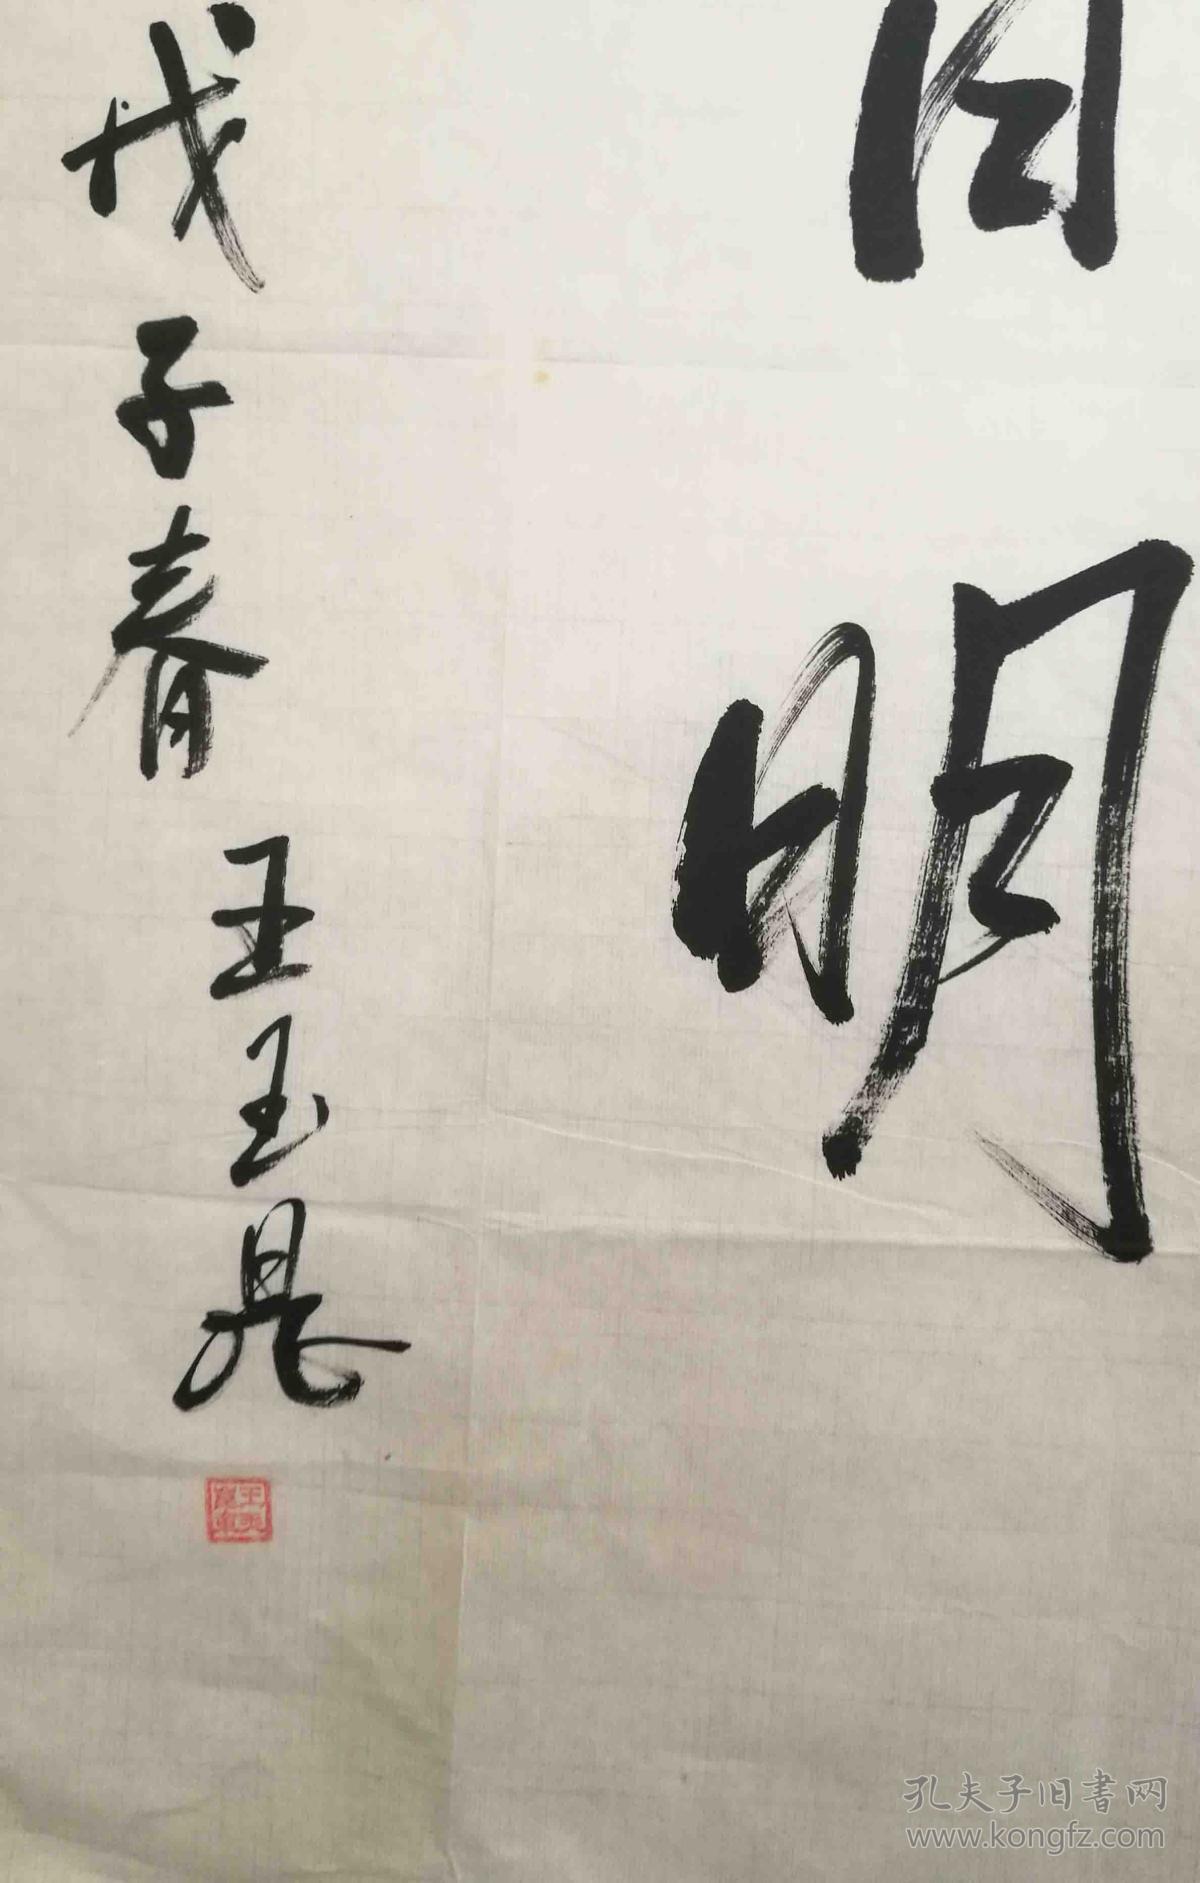 明
戊子春 王玉
孔夫子旧书网
www.kongfz.com